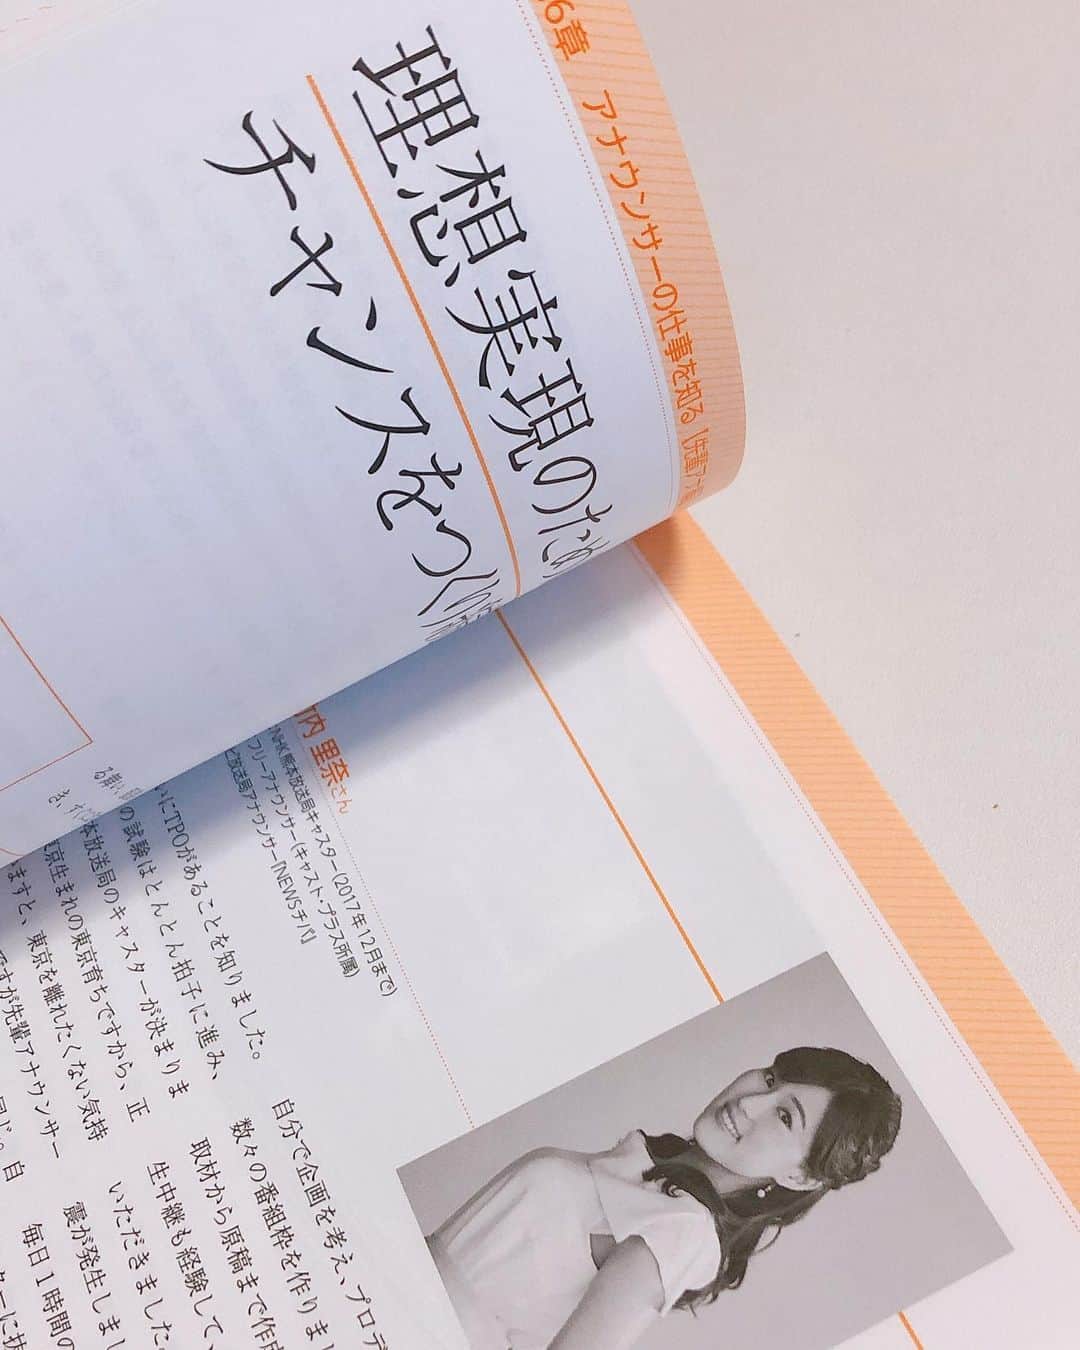 6章 アナウンサーの仕事を知る【先輩ア
理想実現のため
チャンスをつく
内 里奈さん
NHK熊本放送局キャスター(2017年12月まで)
フリーアナウンサー(キャスト・プラス所属)
放送局アナウンサー『NEWSチバ』
いにTPOがあることを知りました。
の試験はとんとん拍子に進み、
本放送局のキャスターが決まりま
京生まれの東京育ちですから、正
ますと、東京を離れたくない気持
ですが先輩アナウンサー
同じ。自
自分で企画を考え、プロデ
数々の番組枠を作りま
取材から原稿まで作成
生中継も経験して、
いただきました
震が発生しまし
毎日1時間の
ターに抜